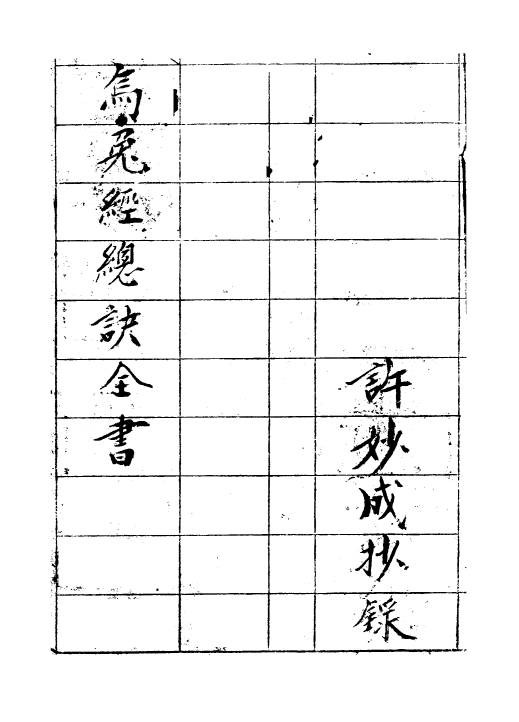 許妙成抄錄
烏兔經總訣全書